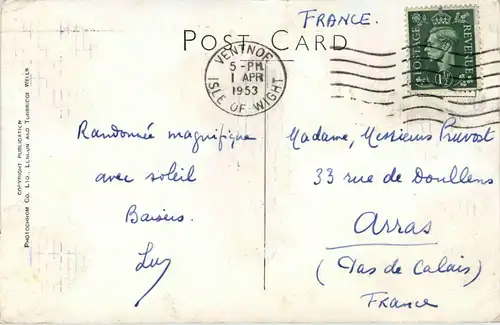 FRANCE.
POST CARD
VENTNOR
5-PM
1 APR
1953
ISLE OF WIGHT
POSTAGE REVENUE
Randonnée magnifique
avec soleil
Baisers.
Madame, Messieurs Pruvost
33 rue de Doullens
Arras
(Pas de Calais)
France
COPYRIGHT PUBLICATION
PHOTOCHROM CO. LTD., LONDON AND TUNBRIDGE WELLS